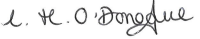 L. H. O'Donoghue